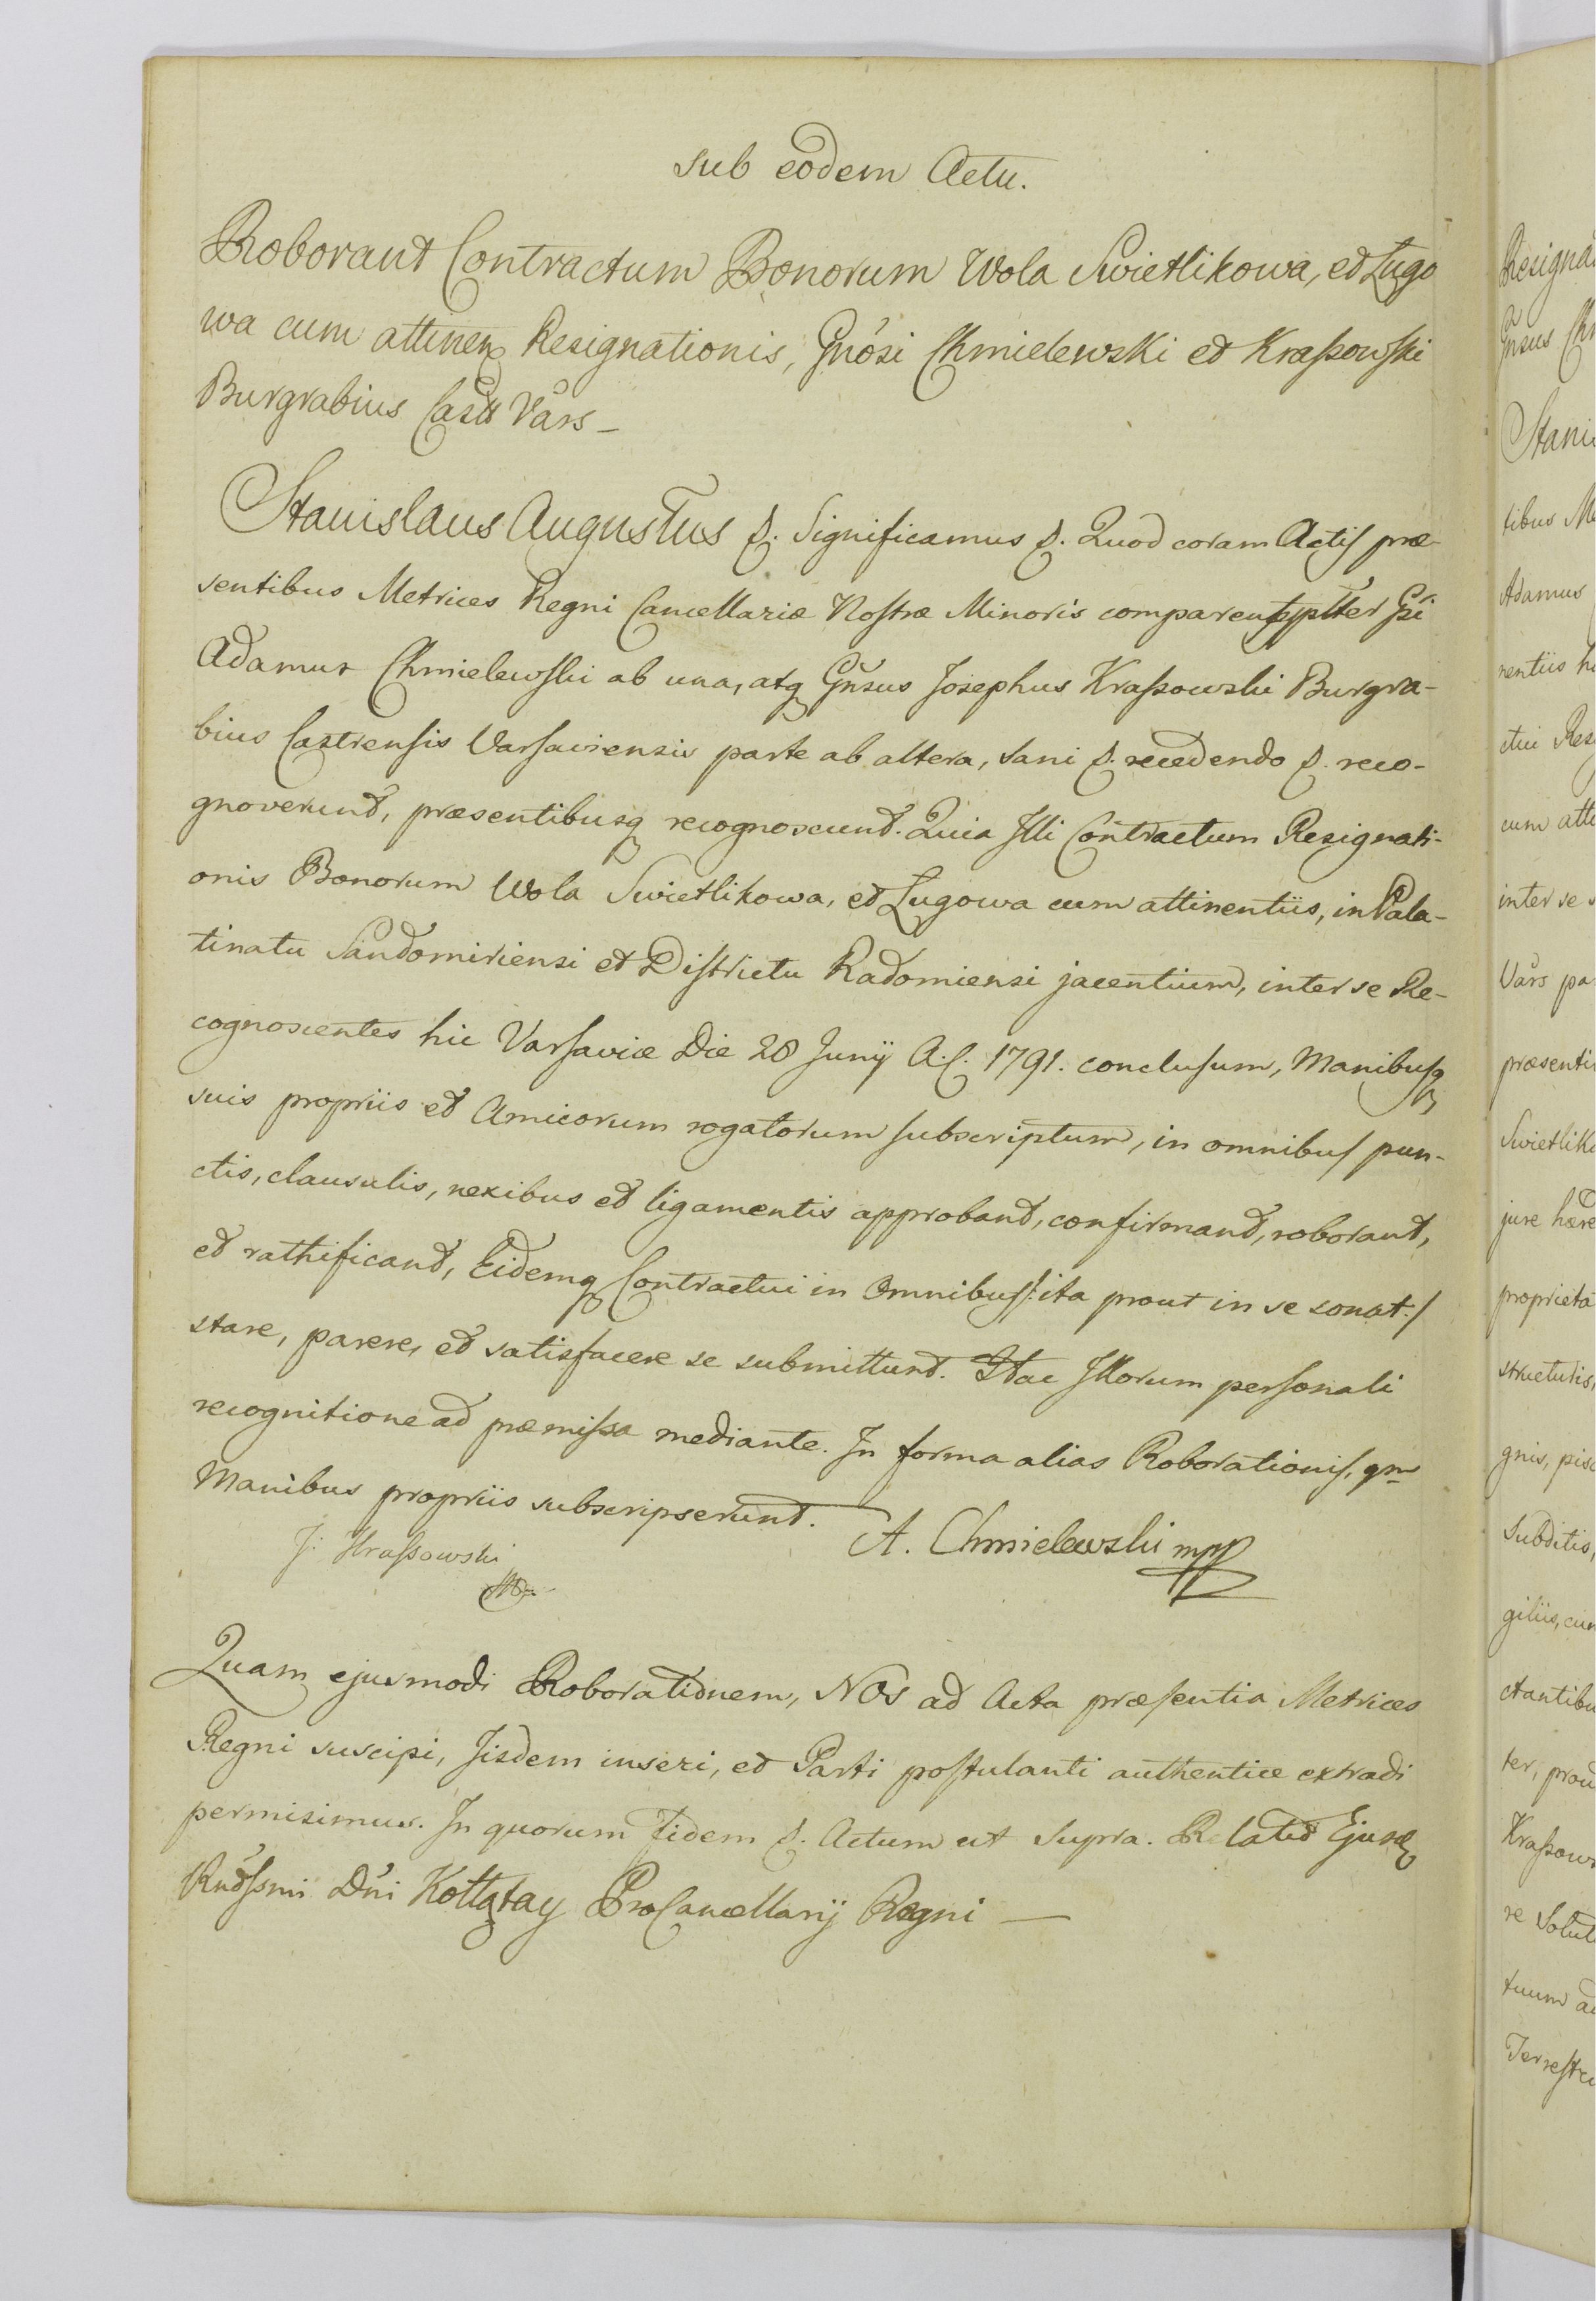 sub eodem Actu.
Roborant Contractum Bonorum Wola Swietlikowa, et Lugo
wa cum attinen Resignationis, Gnosi Chmielewski et Kraſsowſki
Burgrabius Castr Vars –
Stanislaus Augustus &. Significamus &. Quod coram Actiſ præ-
sentibus Metrices Regni Cancellariæ Noſtræ Minoris comparentes pltter Gsi
Adamus Chmielewſki ab una, atq Gnsus Josephus Kraſsowski Burgra-
bius Castrenſis Varſaviensis parte ab altera, sani &. recedendo &. reco-
gnoverunt, præsentibusq recognoscunt. Quia Illi Contractum Resignati-
onis Bonorum Wola Swietlikowa, et Lugowa cum attinentiis, in Pala-
tinatu Sandomiriensi et Diſtrictu Radomiensi jacentium, inter se Re-
cognoscentes hic Varſaviæ Die 28 Junij A.C. 1791. concluſum, Manibuſq
suis propriis et Amicorum rogatorum ſubscriptum, in omnibuſ pun-
ctis, clausulis, nexibus et ligamentis approbant, confirmant, roborant,
et rathificant, Eidemq Contractui in Omnibuſ /: ita prout in se sonat :/
stare, parere, et satisfacere se submittunt. Hac Illorum perſonali
recognitione ad præmiſsa mediante. In forma alias Roborationiſ, qm
Manibus propriis subscripserunt.
J: Kraſsowski
A. Chmielewski mpp
Quam ejusmodi Roborationem, Nos ad Acta præſentia Metrices
Regni suscipi, Iisdem inseri, et Parti poſtulanti authentice extradi
permisimus. In quorum Fidem &. Actum ut supra. Relatio Ejusd
Rndſsmi Dni Kołłątay ProCancellarij Regni —